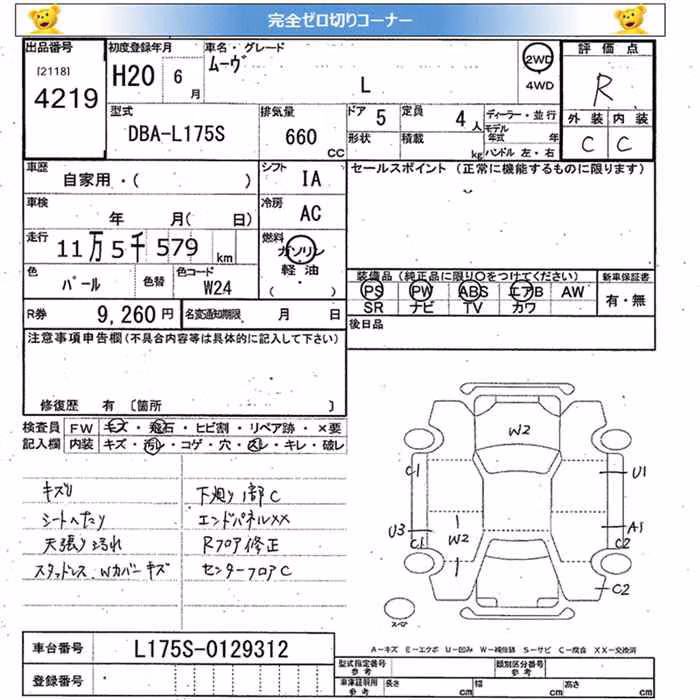 完全ゼロ切りコーナー
出品番号
[2118]
4219
初度登録年月
H20 6月
車名・グレード
ムーヴ
L
2WD
4WD
評価点
R
外装 内装
C C
型式
DBA-L175S
排気量
660
CC
ドア
5
定員
4人
形状
積載
kg
ディーラー・並行
モデル年式 年
ハンドル 左・右
車歴
自家用・( )
シフト
IA
セールスポイント (正常に機能するものに限ります)
車検
年 月( 日)
冷房
AC
走行
11万5千579km
燃料
ガソリン
軽油
( )
色
パール
色替
色コード
W24
装備品(純正品に限り○をつけてください)
PS PW ABS エアB AW
SR ナビ TV カワ
新車保証書
有・無
R券
9,260円
名変通知期限 月 日
後日品
注意事項申告欄(不具合内容等は具体的に記入して下さい)
修復歴 有 〔箇所 〕
検査員記入欄
FW キズ・飛石・ヒビ割・リペア跡・×要
内装 キズ・汚レ・コゲ・穴・スレ・キレ・破レ
キズU
シートへたり
天張り汚れ
スタッドレス.Wカバーキズ
下廻り1部C
エンドパネルXX
Rフロア修正
センターフロアC
W2
C1
U1
U3
C1
W2
A1
C2
C2
スペア
A-キズ E-エクボ U-凹み W-補修跡 S-サビ C-腐食 XX-交換済
車台番号
L175S-0129312
登録番号
型式指定番号
参考
類別区分番号
参考
車庫証明用
参考
長さ cm 幅 cm 高さ cm